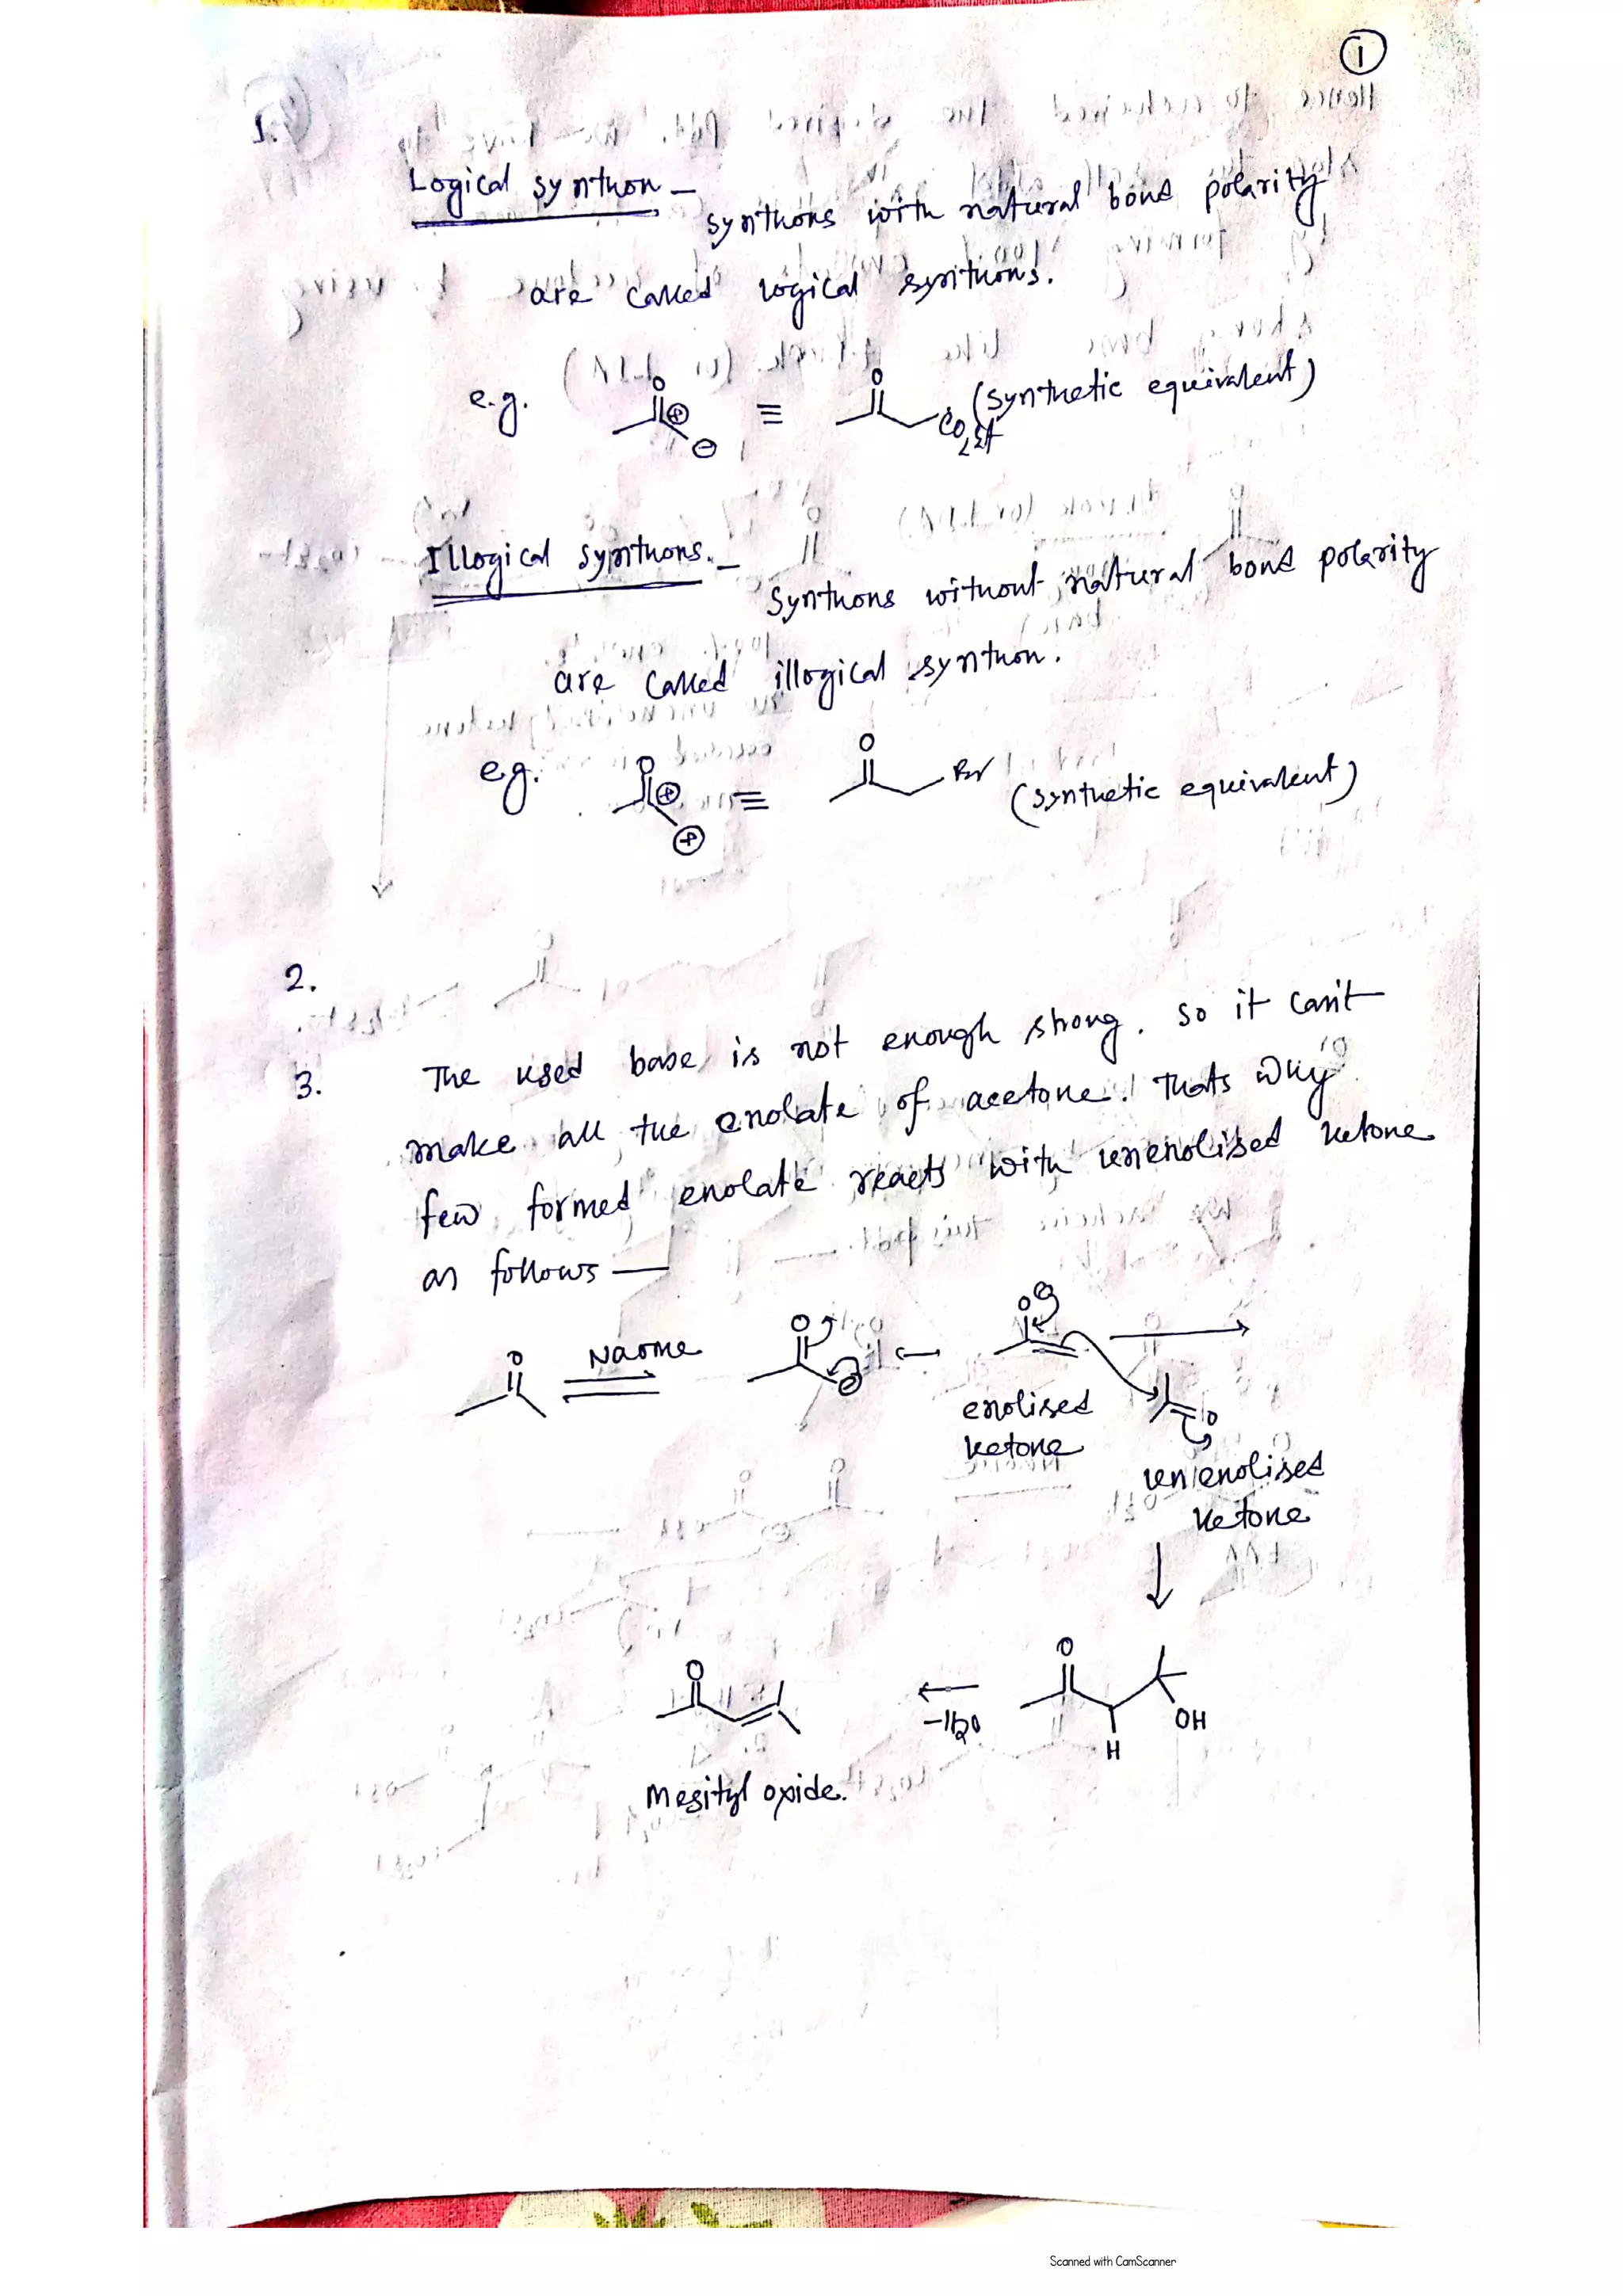 1
1.
Logical synthon —
synthons with natural bond polarity
are called logical synthons.
e.g. O ⊕ ⊖ ≡ O CO2Et (synthetic equivalent)
Illogical synthons. —
Synthons without natural bond polarity
are called illogical synthon.
e.g. O ⊕ ⊕ ≡ O Br (synthetic equivalent)
2.
3. The used base is not enough strong. So it can't
make all the enolate of acetone. Thats why
few formed enolate reacts with unenolised ketone
as follows —
O NaOMe O ⊖ O ⊖
O
enolised
ketone
unenolised
ketone
O O
-H2O OH
H
Mesityl oxide.
Scanned with CamScanner